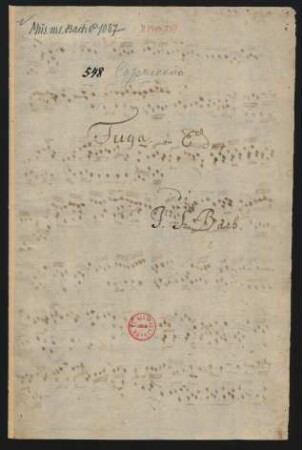 Mus. ms. Bach P 1087
548 Capriccio
Fuga. ex E♮
di
J. S. Bach.